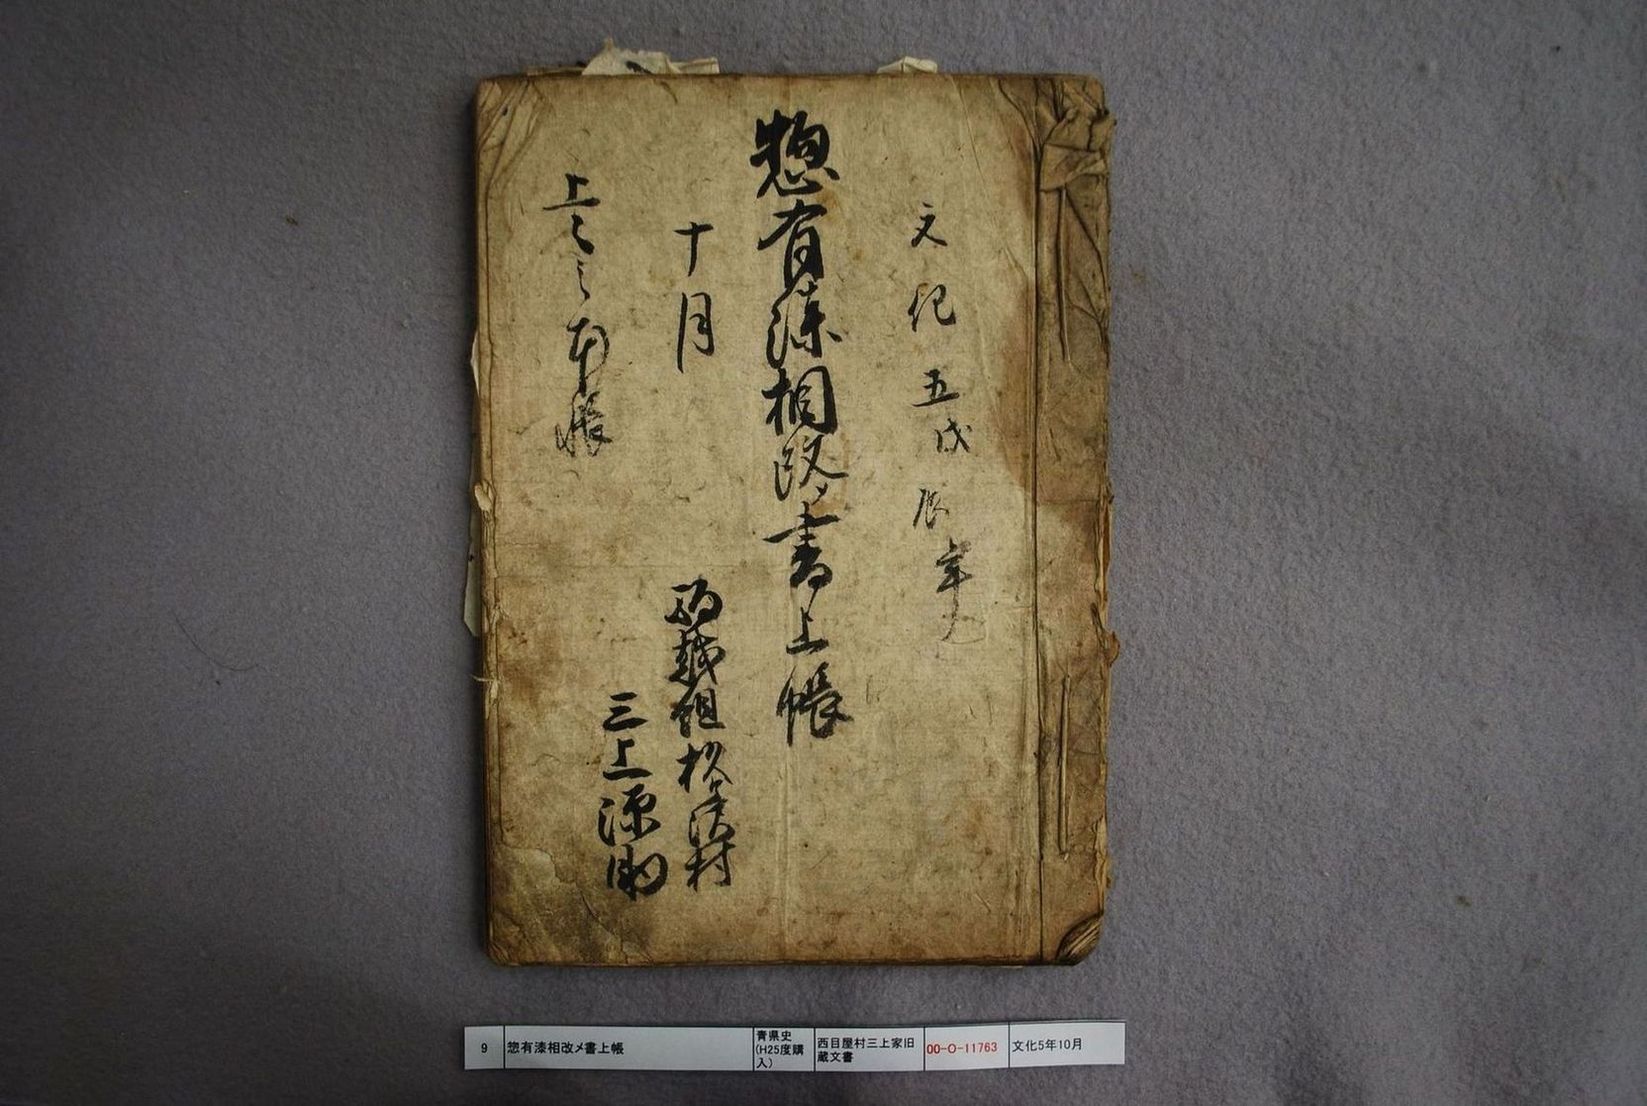 文化五戊辰年
惣有漆相改メ書上帳
十月
駒越組杉ヶ沢村
三上源助
上之
本帳
9
惣有漆相改メ書上帳
青県史
(H25度購
入)
西目屋村三上家旧
蔵文書
00-O-11763
文化5年10月